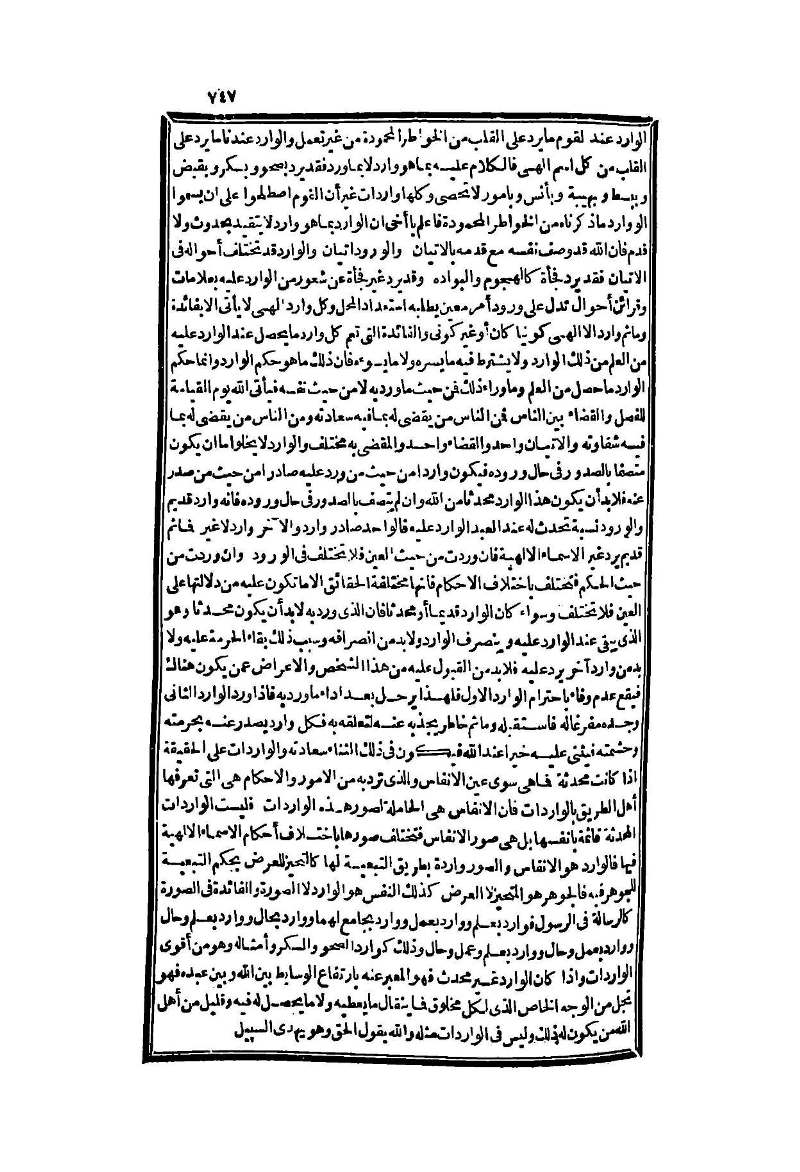 ٧٤٧
الوارد عند القوم ما يرد على القلب من الخواطر المحمودة من غير تعمل والوارد عندنا ما يرد على
القلب من كل اسم الهى فالكلام عليه بما هو وارد لا بما ورد فقد يرد بصحو وبسكر وبقبض
وببسط وبهيبة وبأنس وبامور لا تحصى وكلها واردات غير أن القوم اصطلحوا على ان يسموا
الوارد ما ذكرناه من الخواطر المحمودة فاعلم يا أخى ان الوارد بما هو وارد لا يتقيد بحدوث ولا
قدم فان الله قد وصف نفسه مع قدمه بالاتيان والورود اتيان والوارد قد تختلف أحواله فى
الاتيان فقد يرد فجأة كالهجوم والبواده وقد يرد غير فجأة عن شعور من الوارد عليه بعلامات
وقرائن أحوال تدل على ورود أمر معين يطلبه استعداد المحل وكل وارد الهى لا يأتى الا بفائدة
وما ثم وارد الا الهى كونيا كان أو غير كونى والفائدة التى تعم كل وارد ما يحصل عند الوارد عليه
من العلم من ذلك الوارد ولا يشترط فيه ما يسره ولا ما يسوءه فان ذلك ما هو حكم الوارد وانما حكم
الوارد ما حصل من العلم وما وراء ذلك فمن حيث ما ورد به لا من حيث نفسه فيأتى الله يوم القيامة
للفصل والقضاء بين الناس فمن الناس من يقضى له بما فيه سعادته ومن الناس من يقضى له بما
فيه شقاوته والاتيان واحد والقضاء واحد والمقضى به مختلف والوارد لا يخلوا ما ان يكون
متصفا بالصدور فى حال وروده فيكون واردا من حيث من ورد عليه صادرا من حيث من صدر
عنه فلا بد أن يكون هذا الوارد محدثا من الله وان لم يتصف بالصدور فى حال وروده فانه وارد قديم
والورود نسبة تحدث له عند العبد الوارد عليه فالواحد صادر وارد والآخر وارد لا غير فما ثم
قديم يرد غير الاسماء الالهية فان وردت من حيث العين فلا تختلف فى الورود وان وردت من
حيث الحكم فتختلف باختلاف الاحكام فانها مختلفة الحقائق الا ما تكون عليه من دلالتها على
العين فلا تختلف وسواء كان الوارد قديما أو محدثا فان الذى ورد به لا بد أن يكون محدثا وهو
الذى يبقى عند الوارد عليه وينصرف الوارد ولا بد من انصرافه وسبب ذلك بقاء الحرمة عليه ولا
بد من وارد آخر يرد عليه فلا بد من القبول عليه من هذا الشخص والاعراض عمن يكون هناك
فيقع عدم وفاء باحترام الوارد الاول فلهذا يرحل بعد اداء ما ورد به فاذا ورد الوارد الثانى
وجده مفرغا له فاستقبله وما ثم خاطر يجذبه عنه لتعلقه به فكل وارد يصدر عنه بحرمته
وحشمته فيثنى عليه خيرا عند الله فيكون فى ذلك الثناء سعادته والواردات على الحقيقة
اذا كانت محدثة فما هى سوى عين الانفاس والذى ترد به من الامور والاحكام هى التى تعرفها
أهل الطريق بالواردات فان الانفاس هى الحاملة لصور هذه الواردات فليست الواردات
المحدثة قائمة بانفسها بل هى صور الانفاس فتختلف صورها باختلاف أحكام الاسماء الالهية
فيها فالوارد هو الانفاس والصور واردة بطريق التبعية لها كالتحيز للعرض بحكم التبعية
للجوهر فيه فالجوهر هو المتحيز لا العرض كذلك النفس هو الوارد لا الصورة والفائدة فى الصورة
كالرسالة فى الرسول فوارد بعلم ووارد بعمل ووارد بجامع لهما ووارد بحال ووارد بعلم وحال
ووارد بعمل وحال ووارد بعلم وعمل وحال وذلك كوارد الصحو والسكر وأمثاله وهو من أقوى
الواردات واذا كان الوارد غير محدث فهو المعبر عنه بارتفاع الوسايط بين الله وبين عبده فهو
تجل من الوجه الخاص الذى لكل مخلوق فما ينقال ما يعطيه ولا ما يحصل له فيه وقليل من أهل
الله من يكون له ذلك وليس فى الواردات مثله والله يقول الحق وهو يهدى السبيل